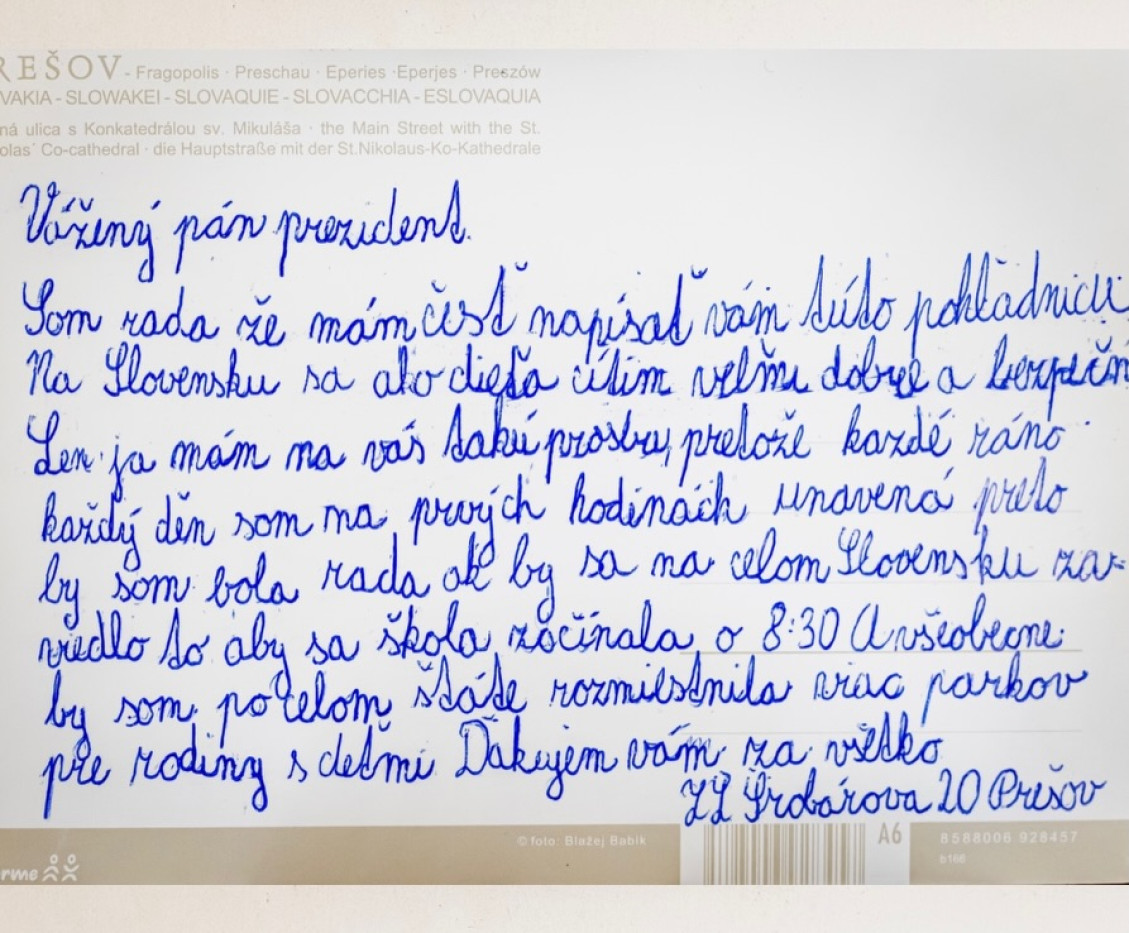 REŠOV - Fragopolis · Preschau · Eperies · Eperjes · Preszów
VAKIA - SLOWAKEI - SLOVAQUIE - SLOVACCHIA - ESLOVAQUIA
ná ulica s Konkatedrálou sv. Mikuláša · the Main Street with the St.
olas´ Co-cathedral · die Hauptstraße mit der St.Nikolaus-Ko-Kathedrale
Vážený pán prezident.
Som rada že mám česť napísať vám túto pohľadnicu
Na Slovensku sa ako dieťa cítim veľmi dobre a bezpečn
Len ja mám na vás takú prosbu, pretože každé ráno
každý děn som na prvých hodinách unavená preto
by som bola rada ak by sa na celom Slovensku za-
viedlo to aby sa škola začínala o 8:30 A všeobecne
by som po celom štáte rozmiestnila viac parkov
pre rodiny s deťmi Ďakujem vám za všetko
ZŠ Šrobárova 20 Prešov
©foto: Blažej Babik
A6
8588006 928457
b166
rme